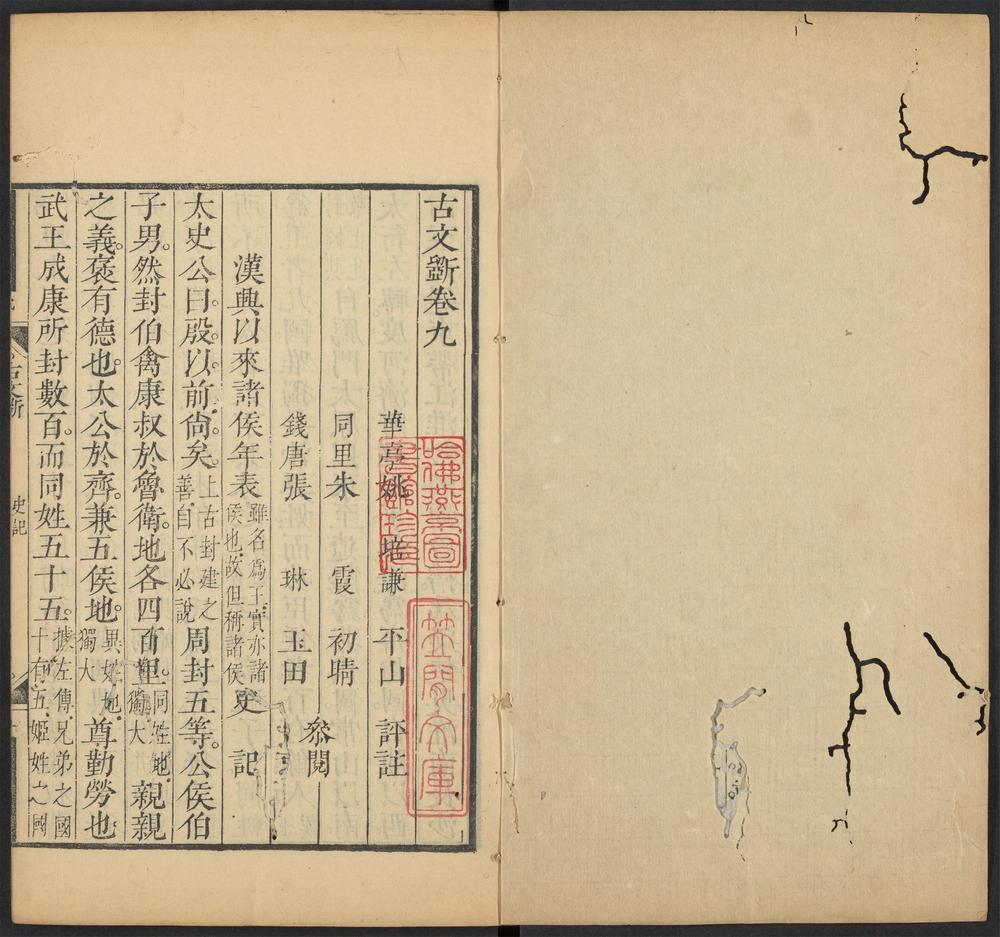 古文斲卷九
華亭姚培謙平山評註
同里朱霞初晴
錢唐張琳玉田
叅閱
漢興以來諸侯年表雖名爲王。實亦諸侯也。故但稱諸侯史記
太史公曰。殷以前尚矣。上古封建之善。自不必說周封五等。公侯伯
子男。然封伯禽康叔於魯衛。地各四百里。同姓地獨大親親
之義。褒有德也。太公於齊。兼五侯地。異姓地。獨大尊勤勞也
武王成康所封數百。而同姓五十五。據左傳。兄弟之國十有五。姬姓之國
古文斲
史記
哈佛燕京圖書館珍藏